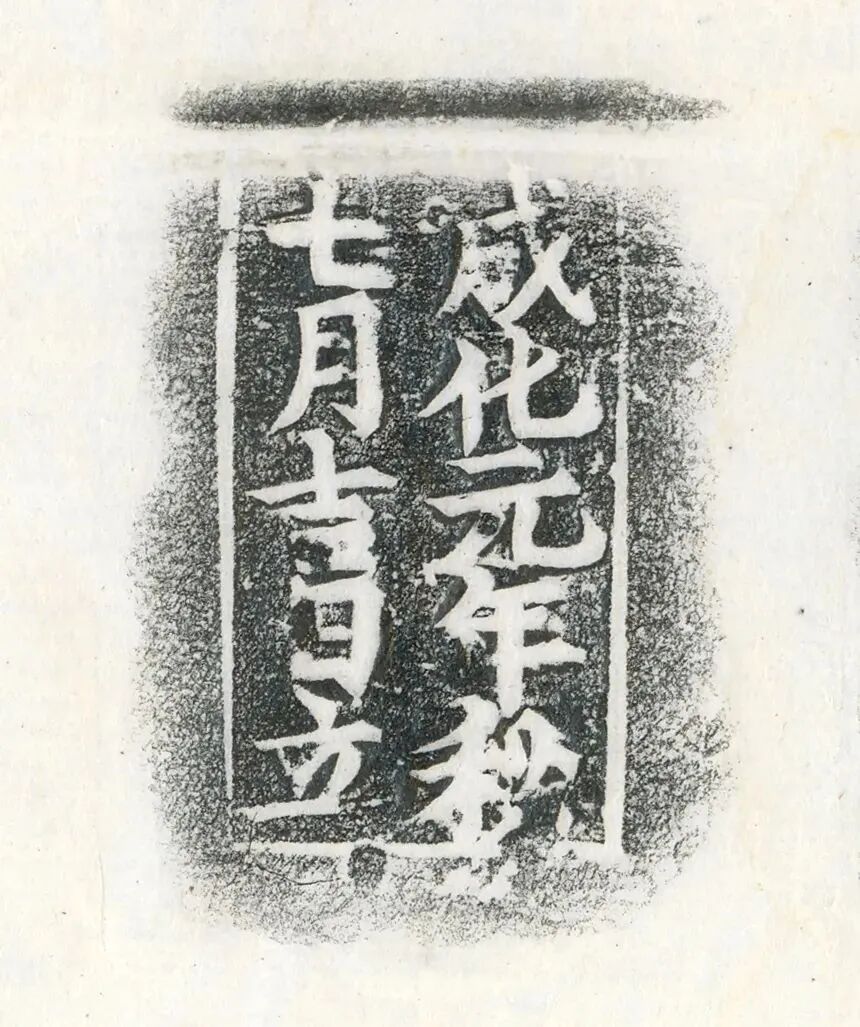 成化元年秋
七月吉日立